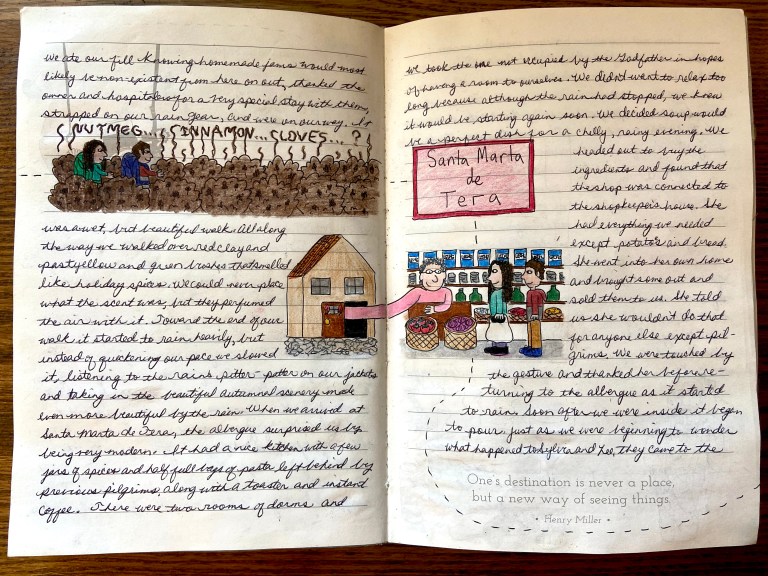 we ate our fill knowing homemade jams would most
likely be non-existent from here on out, thanked the
owner and hospitalero for a very special stay with them,
strapped on our rain gear, and were on our way. It
NUTMEG... CINNAMON... CLOVES...?
was a wet, but beautiful walk. All along
the way we walked over red clay and
past yellow and green bushes that smelled
like holiday spices. We could never place
what the scent was, but they perfumed
the air with it. Toward the end of our
walk it started to rain heavily, but
instead of quickening our pace we slowed
it, listening to the rain's pitter-patter on our jackets
and taking in the beautiful autumnal scenery made
even more beautiful by the rain. When we arrived at
Santa Marta de Tera, the albergue surprised us by
being very modern. It had a nice kitchen with a few
jars of spices and half full bags of pasta left behind by
previous pilgrims, along with a toaster and instant
coffee. There were two rooms of dorms and
we took the one not occupied by the Godfather in hopes
of having a room to ourselves. We didn't want to relax too
long because although the rain had stopped, we knew
it would be starting again soon. We decided soup would
be a perfect dish for a chilly, rainy evening. We
Santa Marta
de
Tera
headed out to buy the
ingredients and found that
the shop was connected to
the shopkeeper's house. She
had everything we needed
except potatos and bread.
She went into her own home
and brought some out and
sold them to us. She told
us she wouldn't do that
for anyone else except pil-
grims. We were touched by
the gesture and thanked her before re-
turning to the albergue as it started
to rain. Soon after we were inside it began
to pour. Just as we were beginning to wonder
what happened to Sylvia and Leo, they came to the
One's destination is never a place,
but a new way of seeing things.
• Henry Miller •